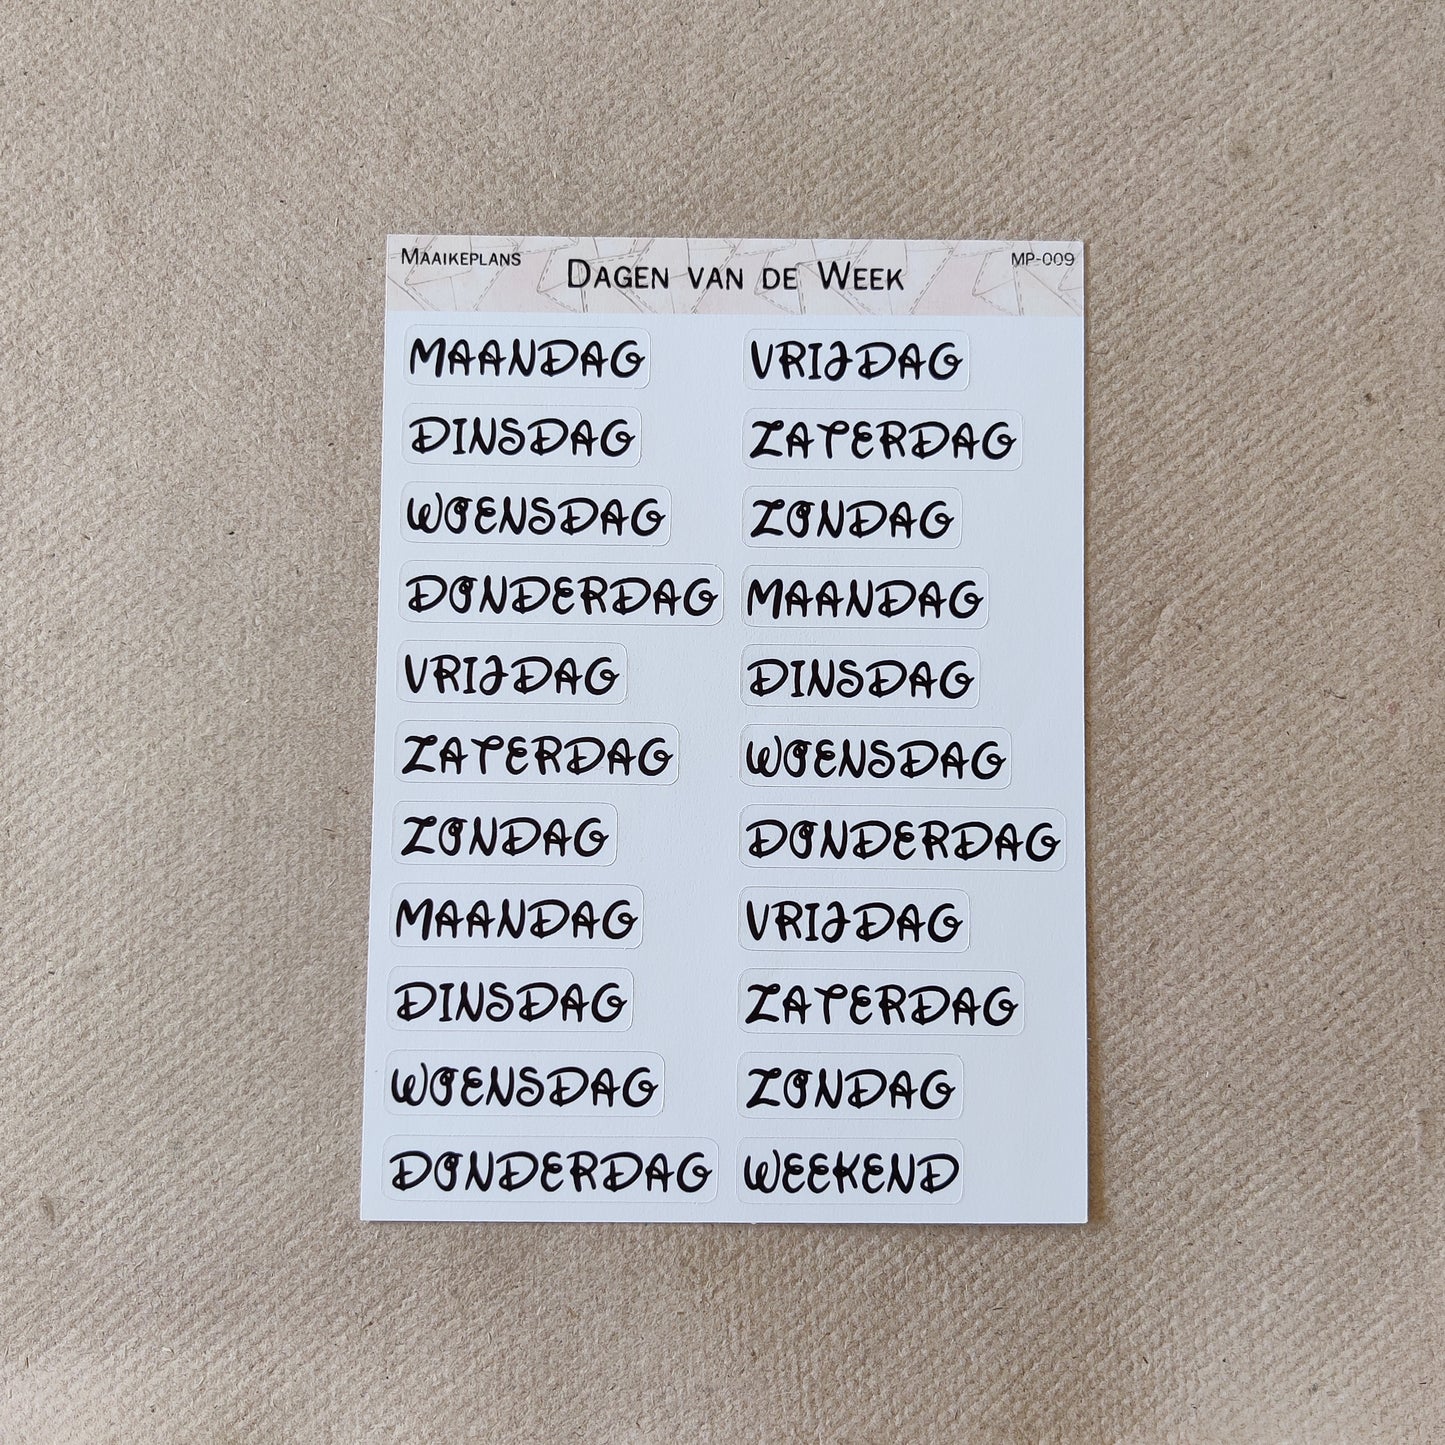 MAAIKEPLANS
DAGEN VAN DE WEEK
MP-009
MAANDAG
DINSDAG
WOENSDAG
DONDERDAG
VRIJDAG
ZATERDAG
ZONDAG
MAANDAG
DINSDAG
WOENSDAG
DONDERDAG
VRIJDAG
ZATERDAG
ZONDAG
MAANDAG
DINSDAG
WOENSDAG
DONDERDAG
VRIJDAG
ZATERDAG
ZONDAG
WEEKEND